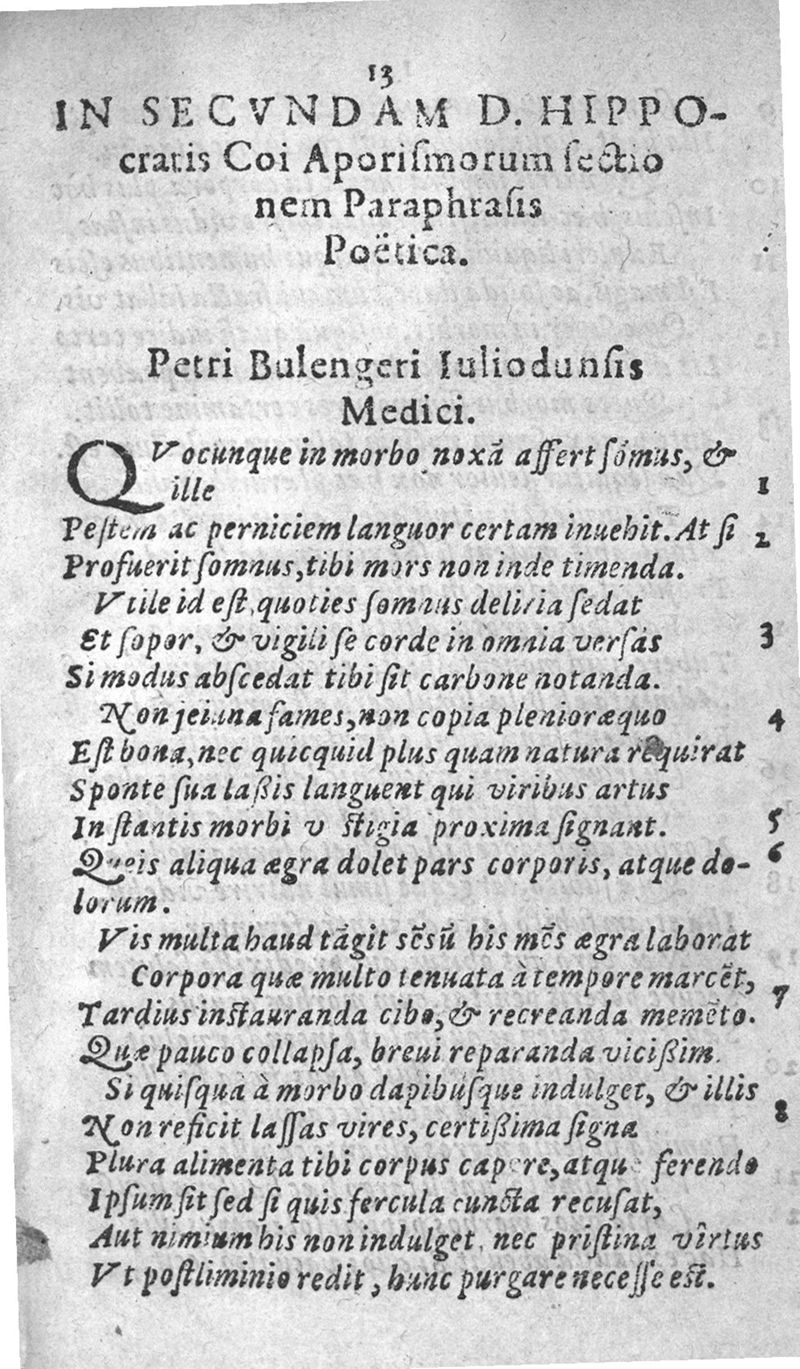 13
IN SECVNDAM D. HIPPO-
cratis Coi Aporiſmorum ſectio
nem Paraphraſis
Poëtica.
Petri Bulengeri Iuliodunſis
Medici.
QVocunque in morbo noxā affert ſómus, &
ille 1
Peſtem ac perniciem languor certam inuehit. At ſi 2
Profuerit ſomnus, tibi mors non inde timenda.
Vtile id eſt, quoties ſomnus deliria ſedat
Et ſopor, & vigili ſe corde in omnia verſās 3
Si modus abſcedat tibi ſit carbone notanda.
Non jeiuna fames, non copia plenior æquo 4
Eſt bona, nec quicquid plus quam natura requirat
Sponte ſua laßis languent qui viribus artus
Inſtantis morbi v ſtigia proxima ſignant. 5
Queis aliqua ægra dolet pars corporis, atque do- 6
lorum.
Vis multa haud tāgit sēsū his mēs ægra laborat
Corpora quæ multo tenuata à tempore marcēt, 7
Tardius inſtauranda cibo, & recreanda memēto.
Quæ pauco collapſa, breui reparanda vicißim.
Si quiſquā à morbo dapibúſque indulget, & illis 8
Non reficit laſſas vires, certißima ſigna
Plura alimenta tibi corpus capere, atque ferendo
Ipſum ſit ſed ſi quis fercula cuncta recuſat,
Aut nimium his non indulget, nec priſtina vîrtus
Vt poſtliminio redit, hunc purgare neceſſe eſt.